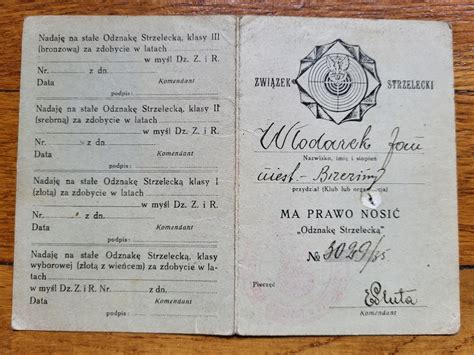 Nadaję na stałe Odznakę Strzelecką, klasy III
(bronzową) za zdobycie w latach
w myśl Dz. Z. i R.
Nr. z dn.
Data Komendant
podpis:
Nadaję na stałe Odznakę Strzelecką, klasy II
(srebrną) za zdobycie w latach
w myśl Dz. Z. i R.
Nr. z dn.
Data Komendant
podpis:
Nadaję na stałe Odznakę Strzelecką, klasy I
(złotą) za zdobycie w latach
w myśl Dz. Z. i R.
Nr. z dn.
Data Komendant
podpis:
Nadaję na stałe Odznakę Strzelecką, klasy
wyborowej (złotą z wieńcem) za zdobycie w la-
tach
w myśl Dz. Z. i R. Nr. z dn.
Data Komendant
podpis:
ZWIĄZEK STRZELECKI
Włodarek Jan
Nazwisko, imię i stopień
Brzeziny
przydział (Klub lub organizacja)
MA PRAWO NOSIĆ
„Odznakę Strzelecką"
№ 3029/35
Pieczęć
Komendant